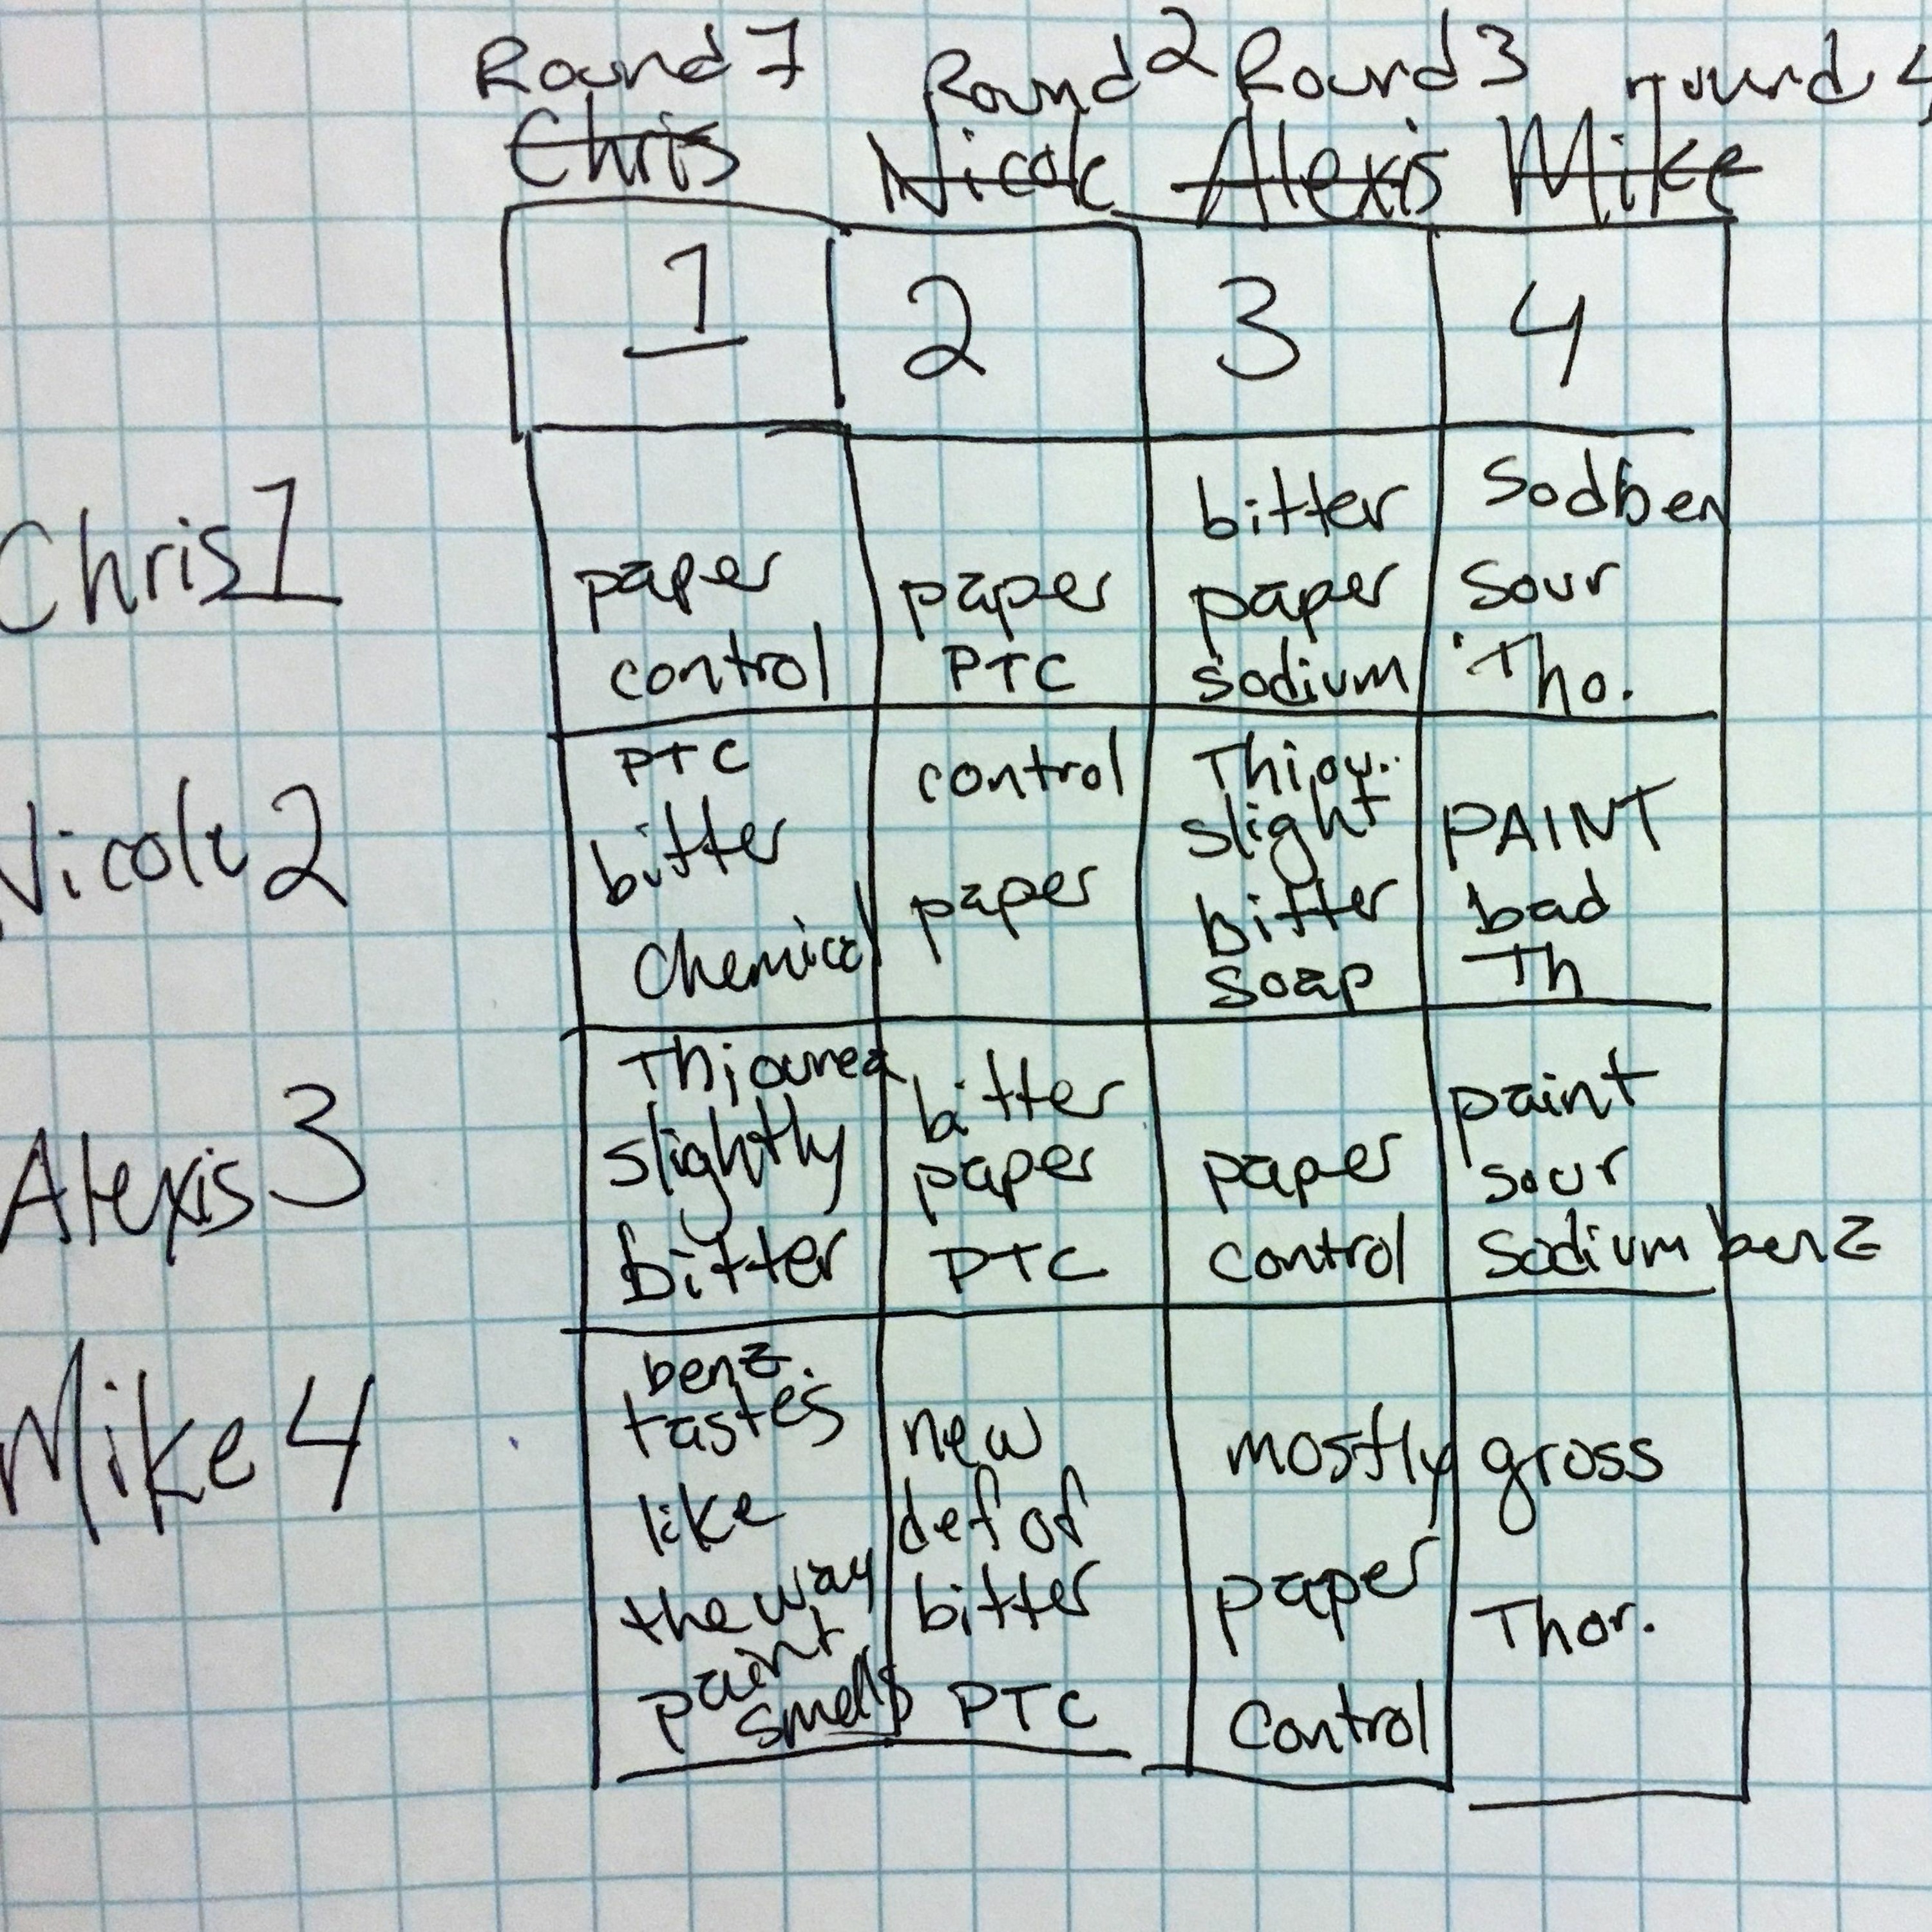 Round 1 Round 2 Round 3 round 4
Chris Nicole Alexis Mike
1 2 3 4
Chris 1
paper
control
paper
PTC
bitter
paper
sodium
Sodben
Sour
Tho.
Nicole 2
PTC
bitter
Chemical
control
paper
Thiou..
slight
bitter
soap
PAINT
bad
Th
Alexis 3
Thiourea
slightly
bitter
bitter
paper
PTC
paper
control
paint
sour
Sodium benz
Mike 4
benz.
tastes
like
the way
paint
smells
new
def of
bitter
PTC
mostly
paper
Control
gross
Thor.